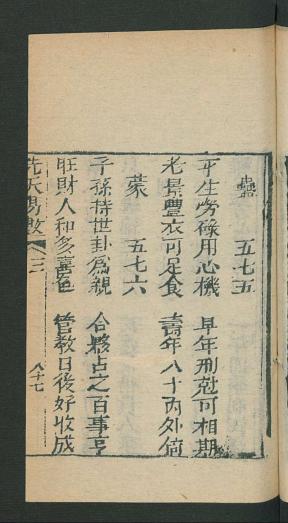 蠱 五七五
平生勞碌用心機 早年刑尅可相期
老景豐衣可足食 壽年八十內外倘
蒙 五七六
子孫持世卦為親 合夥占之百事亨
旺財人和多喜色 管教日後好收成
先天易數 卷三 八十七